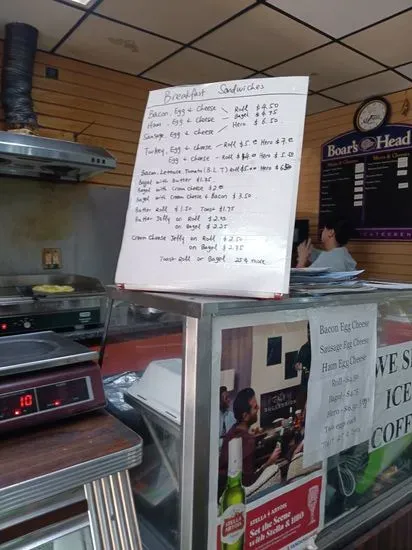 Breakfast Sandwiches
Bacon, Egg & Cheese
Ham, Egg & Cheese
Sausage, Egg & Cheese
Roll $4.50
Bagel $4.75
Hero $6.50
Turkey, Egg & Cheese - Roll $5.00 Hero $7.00
Egg & Cheese - Roll $4.00 Hero $5.50
Bacon, Lettuce Tomato (B.L.T) Roll $5.00 Hero
Bagel with Butter $1.75
Bagel with Cream Cheese
Bagel with Cream Cheese & Bacon $3.50
Butter Roll $1.50 Toast $1.75
Butter Jelly on Roll
on Bagel $2.25
Cream Cheese Jelly on Roll $2.50
on Bagel
Toast Roll or Bagel 25¢ more
Boar's Head
10
Bacon Egg Cheese
Sausage Egg Cheese
Ham Egg Cheese
Roll - $4.50
Bagel - $4.75
Hero - $6.50
Two eggs
WE S
ICE
COFF
STELLA ARTOIS
Set the Scene
with Stella &